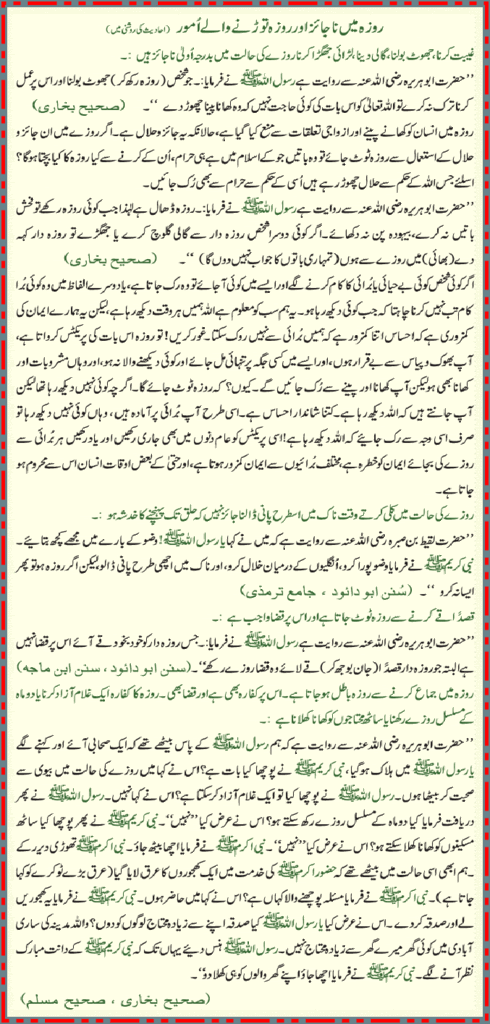 روزہ میں ناجائز اور روزہ توڑنے والے اُمور (احادیث کی روشنی میں)
غیبت کرنا، جھوٹ بولنا، گالی دینا، لڑائی جھگڑا کرنا روزے کی حالت میں بدرجہ اُولیٰ ناجائز ہیں :۔
’’حضرت ابو ہریرہ رضی اللہ عنہ سے روایت ہے رسول اللہ ﷺ نے فرمایا:۔ جو شخص (روزہ رکھ کر) جھوٹ بولنا اور اس پر عمل
کرنا ترک نہ کرے تو اللہ تعالیٰ کو اس بات کی کوئی حاجت نہیں کہ وہ کھانا پینا چھوڑ دے ‘‘۔ (صحیح بخاری)
روزہ میں انسان کو کھانے پینے اور ازواجی تعلقات سے منع کیا گیا ہے، حالانکہ یہ جائز و حلال ہے۔ اگر روزے میں ان جائز و
حلال کے استعمال سے روزہ ٹوٹ جائے تو وہ باتیں جو کے اسلام میں ہے ہی حرام، اُن کے کرنے سے کیا روزہ کا کیا بچتا ہوگا؟
اسلئے جس اللہ کے حکم سے حلال چھوڑ رہے ہیں اُسی کے حکم سے حرام سے بھی رُک جائیں۔
’’حضرت ابو ہریرہ رضی اللہ عنہ سے روایت ہے رسول اللہ ﷺ نے فرمایا:۔ روزہ ڈھال ہے لہٰذا جب کوئی روزہ رکھے تو فحش
باتیں نہ کرے، بیہودہ پن نہ دکھائے۔ اگر کوئی دوسرا شخص روزہ دار سے گالی گلوچ کرے یا جھگڑے تو روزہ دار کہہ
دے (بھائی) میں روزے سے ہوں (تمہاری باتوں کا جواب نہیں دوں گا) ‘‘۔ (صحیح بخاری)
اگر کوئی شخص کوئی بے حیائی یا بُرائی کا کام کرنے لگے اور ایسے میں کوئی آ جائے تو وہ رک جاتا ہے، یا دوسرے الفاظ میں وہ کوئی بُرا
کام تب نہیں کرنا چاہتا کہ جب کوئی دیکھ رہا ہو۔ یہ ہم سب کو معلوم ہے اللہ ہمیں ہر وقت دیکھ رہا ہے، لیکن یہ ہمارے ایمان کی
کمزوری ہے کہ احساس اتنا کمزور ہے کہ ہمیں بُرائی سے نہیں روک سکتا۔ غور کریں! تو روزہ اس بات کی پریکٹس کرواتا ہے،
آپ بھوک و پیاس سے بے قرار ہوں، اور ایسے میں کسی جگہ پر تنہائی مل جائے اور کوئی دیکھنے والا نہ ہو، اور وہاں مشروبات اور
کھانا بھی ہو لیکن آپ کھانا اور پینے سے رُک جائیں گے۔ کیوں؟ کہ روزہ ٹوٹ جائے گا۔ اگر چہ کوئی نہیں دیکھ رہا تھا لیکن
آپ جانتے ہیں کہ اللہ دیکھ رہا ہے۔ کتنا شاندار احساس ہے۔ اسی طرح آپ بُرائی پر آمادہ ہیں، وہاں کوئی نہیں دیکھ رہا تو
صرف اسی وجہ سے رک جایئے کہ اللہ دیکھ رہا ہے! اسی پریکٹس کو عام دنوں میں بھی جاری رکھیں اور یاد رکھیں ہر بُرائی سے
روزے کی بجائے ایمان کو خطرہ ہے، مختلف بُرائیوں سے ایمان کمزور ہوتا ہے، اور حتیٰ کے بعض اوقات انسان اس سے محروم ہو
جاتا ہے۔
روزے کی حالت میں کلی کرتے وقت ناک میں اسطرح پانی ڈالنا جائز نہیں کہ حلق تک پہنچنے کا خدشہ ہو :۔
’’حضرت لقیط بن صبرہ رضی اللہ عنہ سے روایت ہے کہ میں نے کہا یا رسول اللہ ﷺ! وضو کے بارے میں مجھے کچھ بتایئے۔
نبی کریم ﷺ نے فرمایا وضو پورا کرو، اُنگلیوں کے درمیان خلال کرو، اور ناک میں اچھی طرح پانی ڈالو لیکن اگر روزہ ہو تو پھر
ایسا نہ کرو ‘‘۔ (سُنن ابو دائود ، جامع ترمذی)
قصداً قے کرنے سے روزہ ٹوٹ جاتا ہے اور اس پر قضا واجب ہے :۔
’’حضرت ابو ہریرہ رضی اللہ عنہ سے روایت ہے رسول اللہ ﷺ نے فرمایا:۔ جس روزہ دار کو خود بخود قے آئے اس پر قضا نہیں
ہے البتہ جو روزہ دار قصداً (جان بوجھ کر) قے لائے وہ قضا روزے رکھے‘‘۔ (سنن ابو دائود، سنن ابن ماجه)
روزہ میں جماع کرنے سے روزہ باطل ہو جاتا ہے۔ اس پر کفارہ بھی ہے اور قضا بھی۔ روزہ کا کفارہ ایک غلام آزاد کرنا یا دو ماہ
کے مسلسل روزے رکھنا یا ساٹھ محتاجوں کو کھانا کھلانا ہے :۔
’’حضرت ابو ہریرہ رضی اللہ عنہ سے روایت ہے کہ ہم رسول اللہ ﷺ کے پاس بیٹھے تھے کہ ایک صحابی آئے اور کہنے لگے
یا رسول اللہ ﷺ میں ہلاک ہو گیا، نبی کریم ﷺ نے پوچھا کیا بات ہے؟ اس نے کہا میں روزے کی حالت میں بیوی سے
صحبت کر بیٹھا ہوں۔ رسول اللہ ﷺ نے پوچھا کیا تو ایک غلام آزاد کر سکتا ہے؟ اس نے کہا نہیں۔ رسول اللہ ﷺ نے پھر
دریافت فرمایا کیا دو ماہ کے مسلسل روزے رکھ سکتے ہو؟ اس نے عرض کیا ’’نہیں‘‘۔ نبی کریم ﷺ نے پھر پوچھا کیا ساٹھ
مسکینوں کو کھانا کھلا سکتے ہو؟ اس نے عرض کیا ’’نہیں‘‘۔ نبی کریم ﷺ نے فرمایا اچھا بیٹھ جاؤ۔ نبی اکرم ﷺ تھوڑی دیر رکے
۔ہم ابھی اسی حالت میں بیٹھے تھے کہ حضور اکرم ﷺ کی خدمت میں ایک کھجوروں کا عرق لایا گیا (عرق بڑے ٹوکرے کو کہا
جاتا ہے)۔ نبی اکرم ﷺ نے فرمایا مسئلہ پوچھنے والا کہاں ہے؟ اس نے کہا میں حاضر ہوں۔ نبی کریم ﷺ نے فرمایا یہ کھجوریں
لے اور صدقہ کر دے۔ اس نے عرض کیا یا رسول اللہ ﷺ کیا صدقہ اپنے سے زیادہ محتاج لوگوں کو دوں؟ واللہ مدینہ کی ساری
آبادی میں کوئی گھر میرے گھر سے زیادہ محتاج نہیں۔ رسول اللہ ﷺ ہنس دیئے یہاں تک کہ نبی کریم ﷺ کے دانت مبارک
نظر آنے لگے۔ نبی کریم ﷺ نے فرمایا اچھا جاؤ اپنے گھر والوں کو ہی کھلا دو‘‘۔
(صحیح بخاری ، صحیح مسلم)